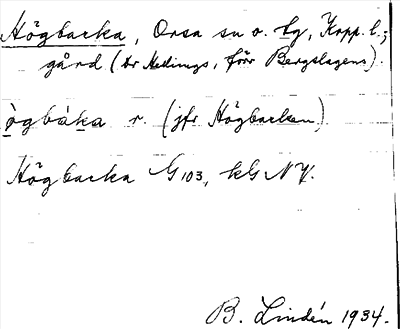 Högbacka, Orsa sn o. tg, Kopp. l.;
gård (br Hedings, förr Bergslagens).
ògbàka r. (jfr Högbacken)
Högbacka G103, kG NV.
B. Lindén 1934.